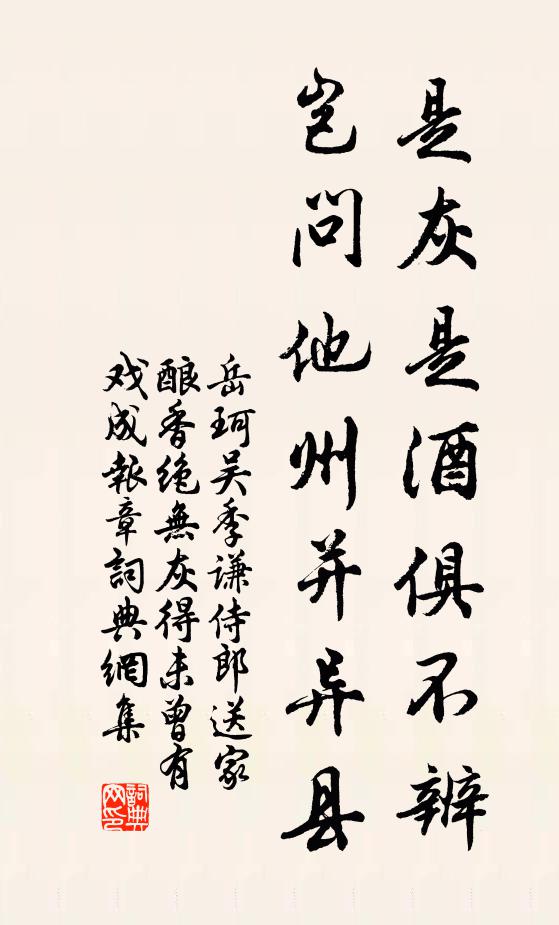 是灰是酒俱不辨
岂问他州并异县
岳珂吴季谦侍郎送家
酿香绝無灰得未曾有
戏成報章詞典網集
詞典
网印